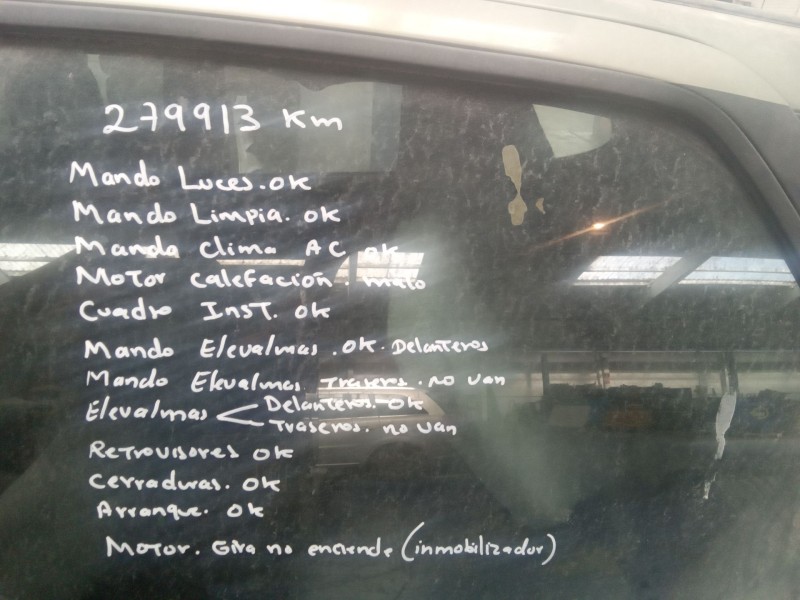 279913 Km
Mando Luces. OK
Mando Limpia. OK
Mando Clima AC OK
Motor Calefación malo
Cuadro Inst. OK
Mando Elevalmas. OK. Delanteros
Mando Elevalmas Traseros. no van
Elevalmas < Delanteros - OK
Traseros. no van
Retrovisores OK
Cerraduras. OK
Arranque. OK
Motor. Gira no enciende (inmobilizador)